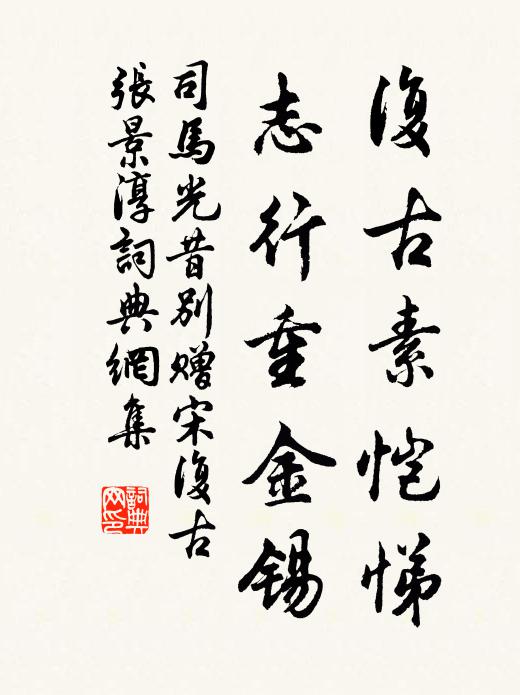 復古素愷悌
志行重金錫
司馬光昔別贈宋復古
張景淳詞典網集
詞典网印